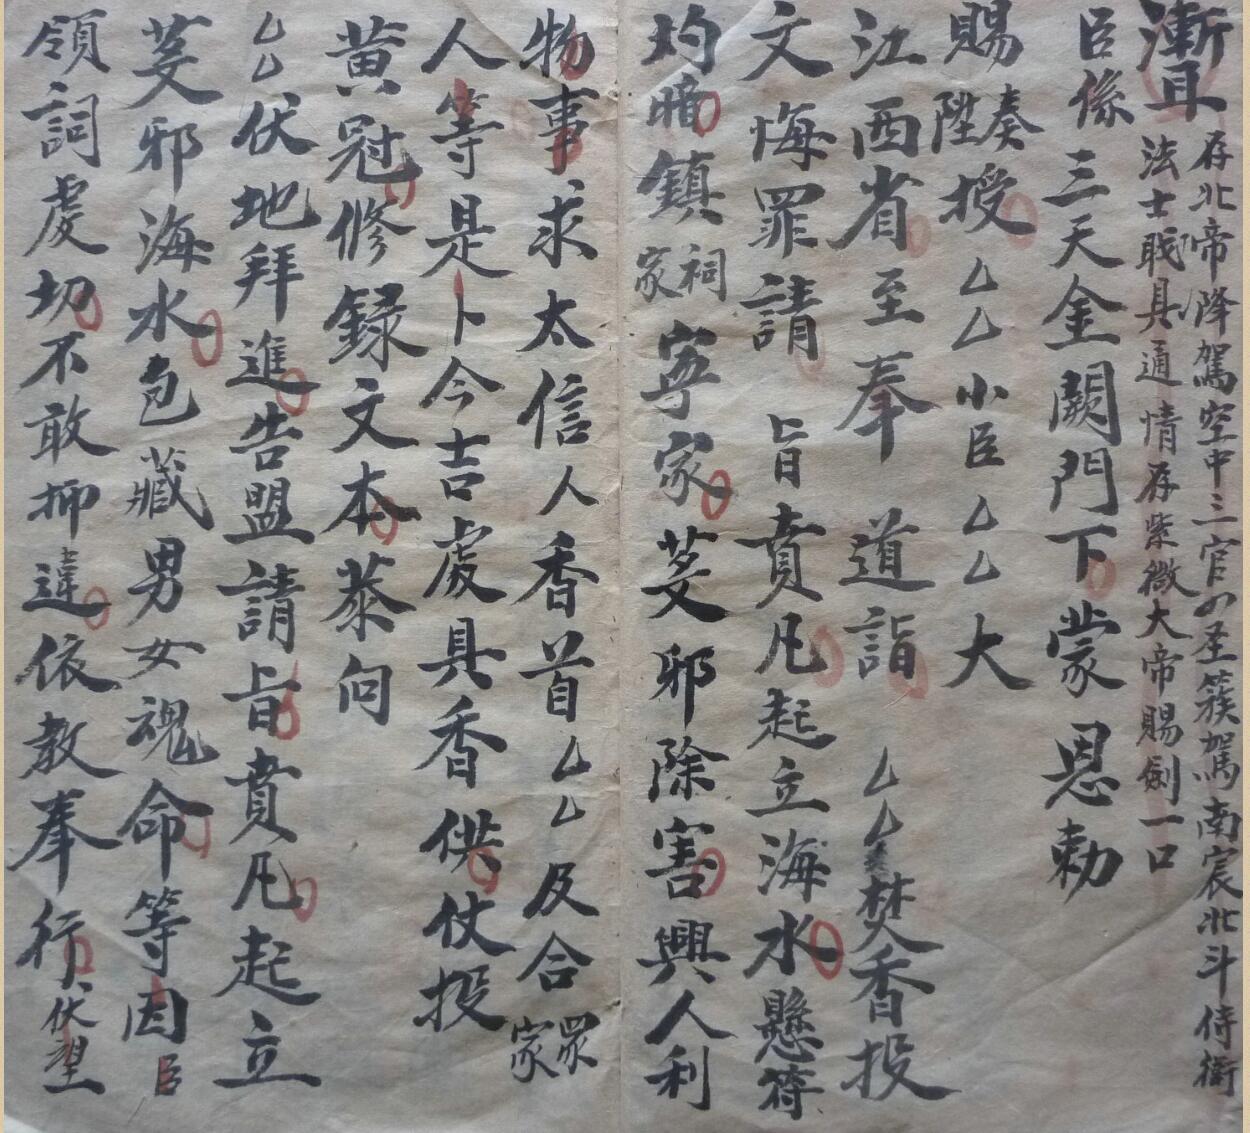 存北帝降駕空中三官四圣簇駕南宸北斗侍衛
法士戢具通情存紫微大帝賜劍一口
臣係三天金闕門下蒙恩勅
賜奏陞授厶厶小臣厶厶大
江西省至奉道詣厶厶焚香投
文悔罪請旨賁凡起立海水懸符
灼暗鎮祠家寧家芟邪除害興人利
物事求太信人香首厶厶及合眾家
人等是卜今吉處具香供仗投
黃冠修録文本恭向
厶厶伏地拜進告盟請旨賁凡起立
芟邪海水包藏男女魂命等因臣
領詞虔切不敢抑違依教奉行伏望